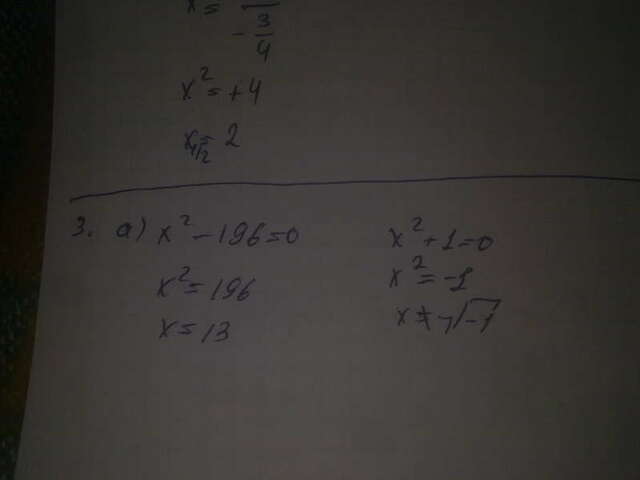 x =
- 3/4
x² = +4
x₁,₂ = 2
3. a) x² - 196 = 0
x² = 196
x = 13
x² + 1 = 0
x² = -1